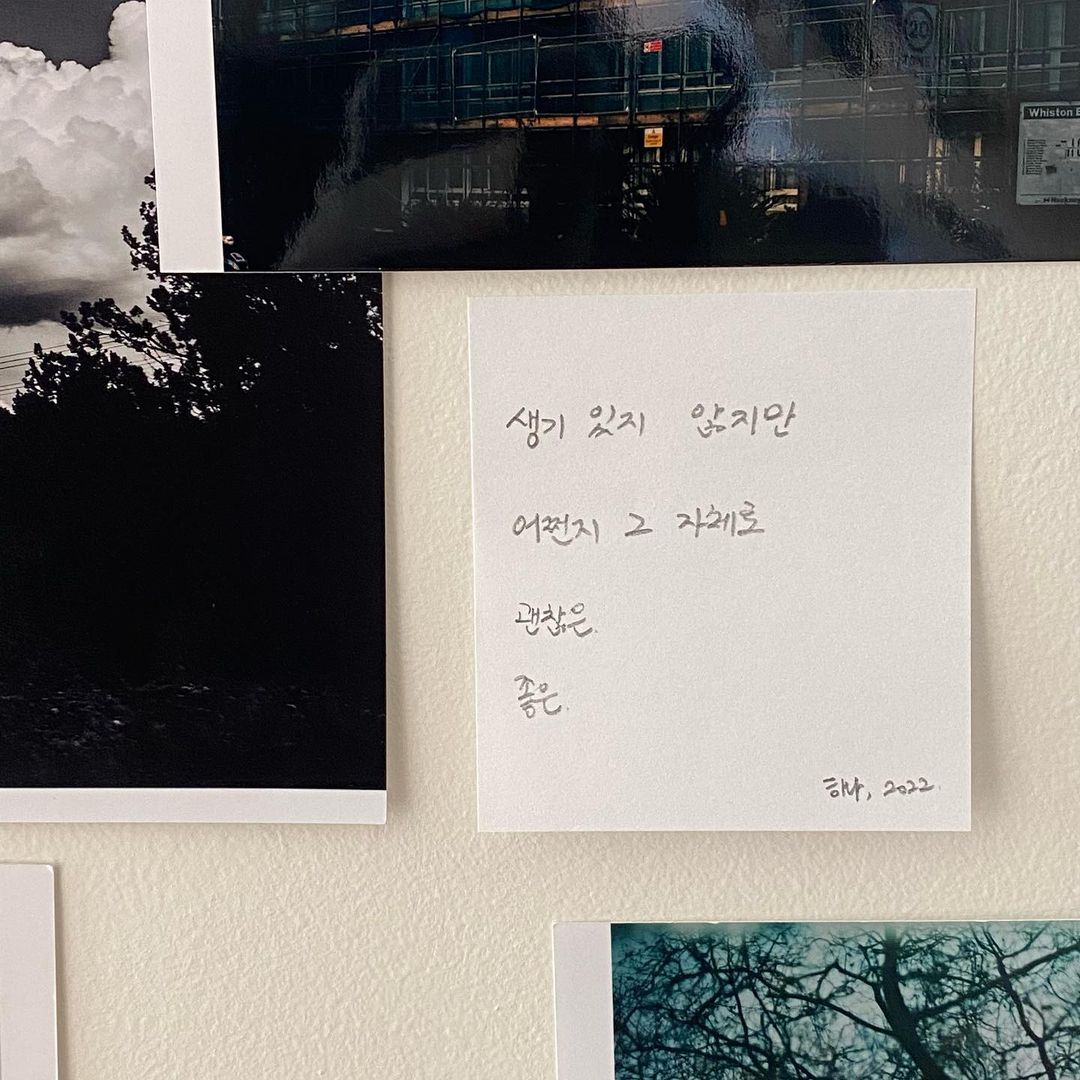 20
ZONE
Whiston E
생기 있지 않지만
어쩐지 그 자체로
괜찮은.
좋은.
하나, 2022.